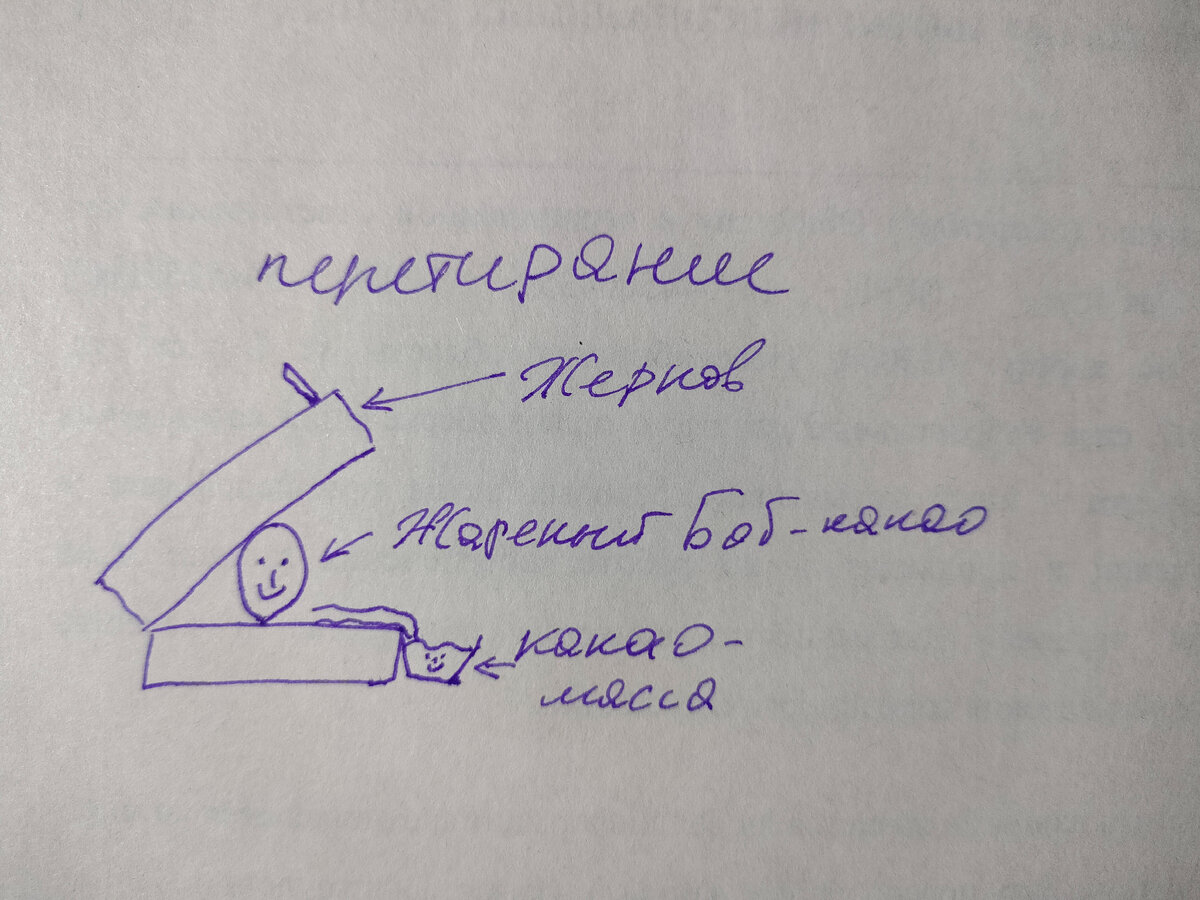 перетирание
Жернов
Жареный Боб-какао
какао-
масса